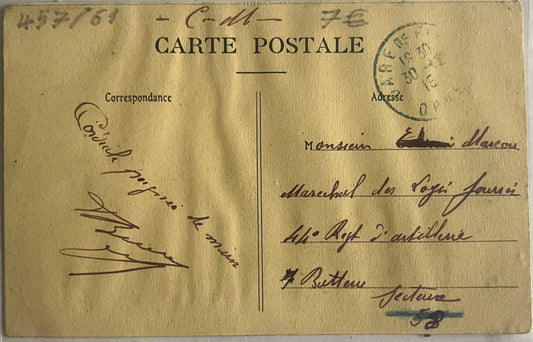 457/61 - C-M - 7€
CARTE POSTALE
GARE DE
18 30
30
15
Correspondance
Adresse
Cordiale poignée de main
Monsieur Marcou
Marechal des Logis fourrier
44e Regt d'artillerie
7 Batterie
Secteur
58